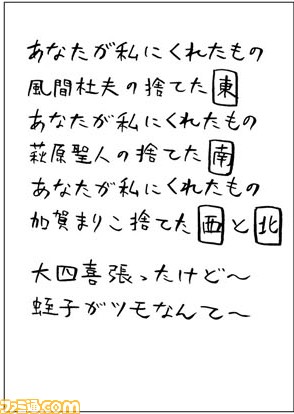 あなたが私にくれたもの
風間杜夫の捨てた東
あなたが私にくれたもの
萩原聖人の捨てた南
あなたが私にくれたもの
加賀まりこ捨てた西と北
大四喜張ったけど〜
蛭子がツモなんて〜
ファミ通.com